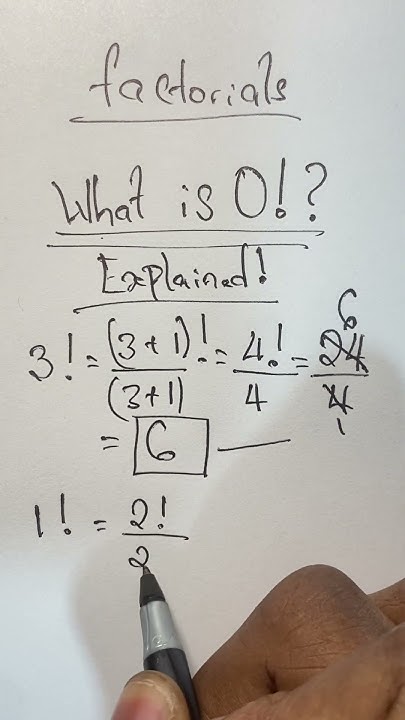 factorials
What is 0!?
Explained!
3! = (3+1)!/(3+1) = 4!/4 = 24/4 6 1
= 6
1! = 2!/2